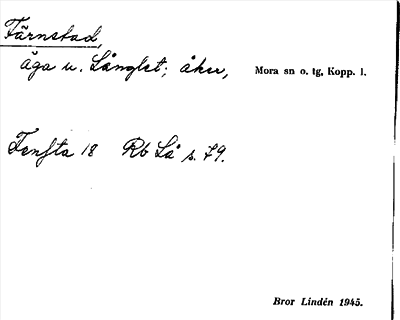 Färnstad,
äga u. Långlet; åker,
Mora sn o. tg, Kopp. l.
Fensta 18 Rb Lå s. 79.
Bror Lindén 1945.